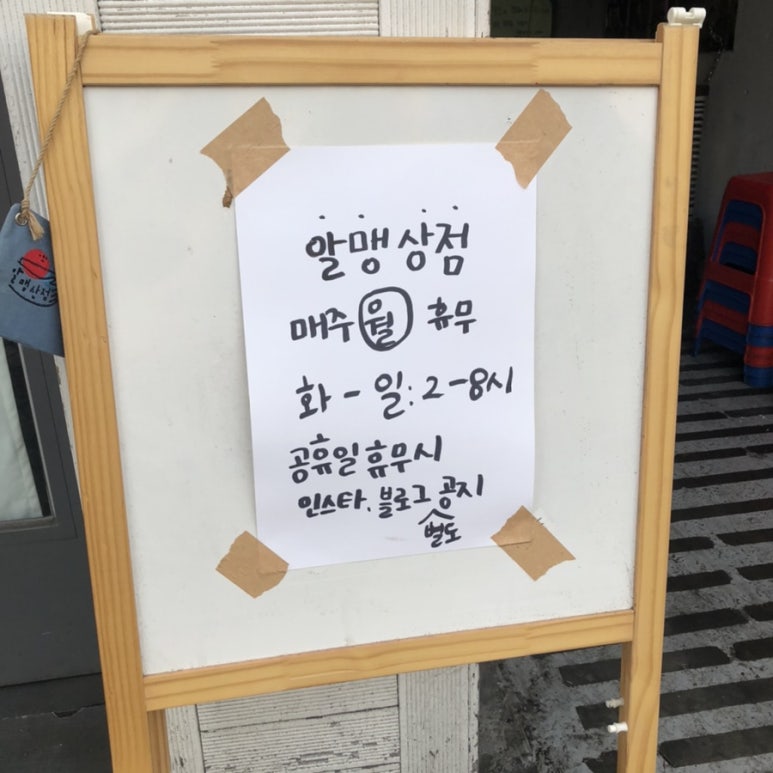 알맹상점
알맹상점
매주 월 휴무
화-일: 2-8시
공휴일 휴무시
인스타. 블로그 별도 공지